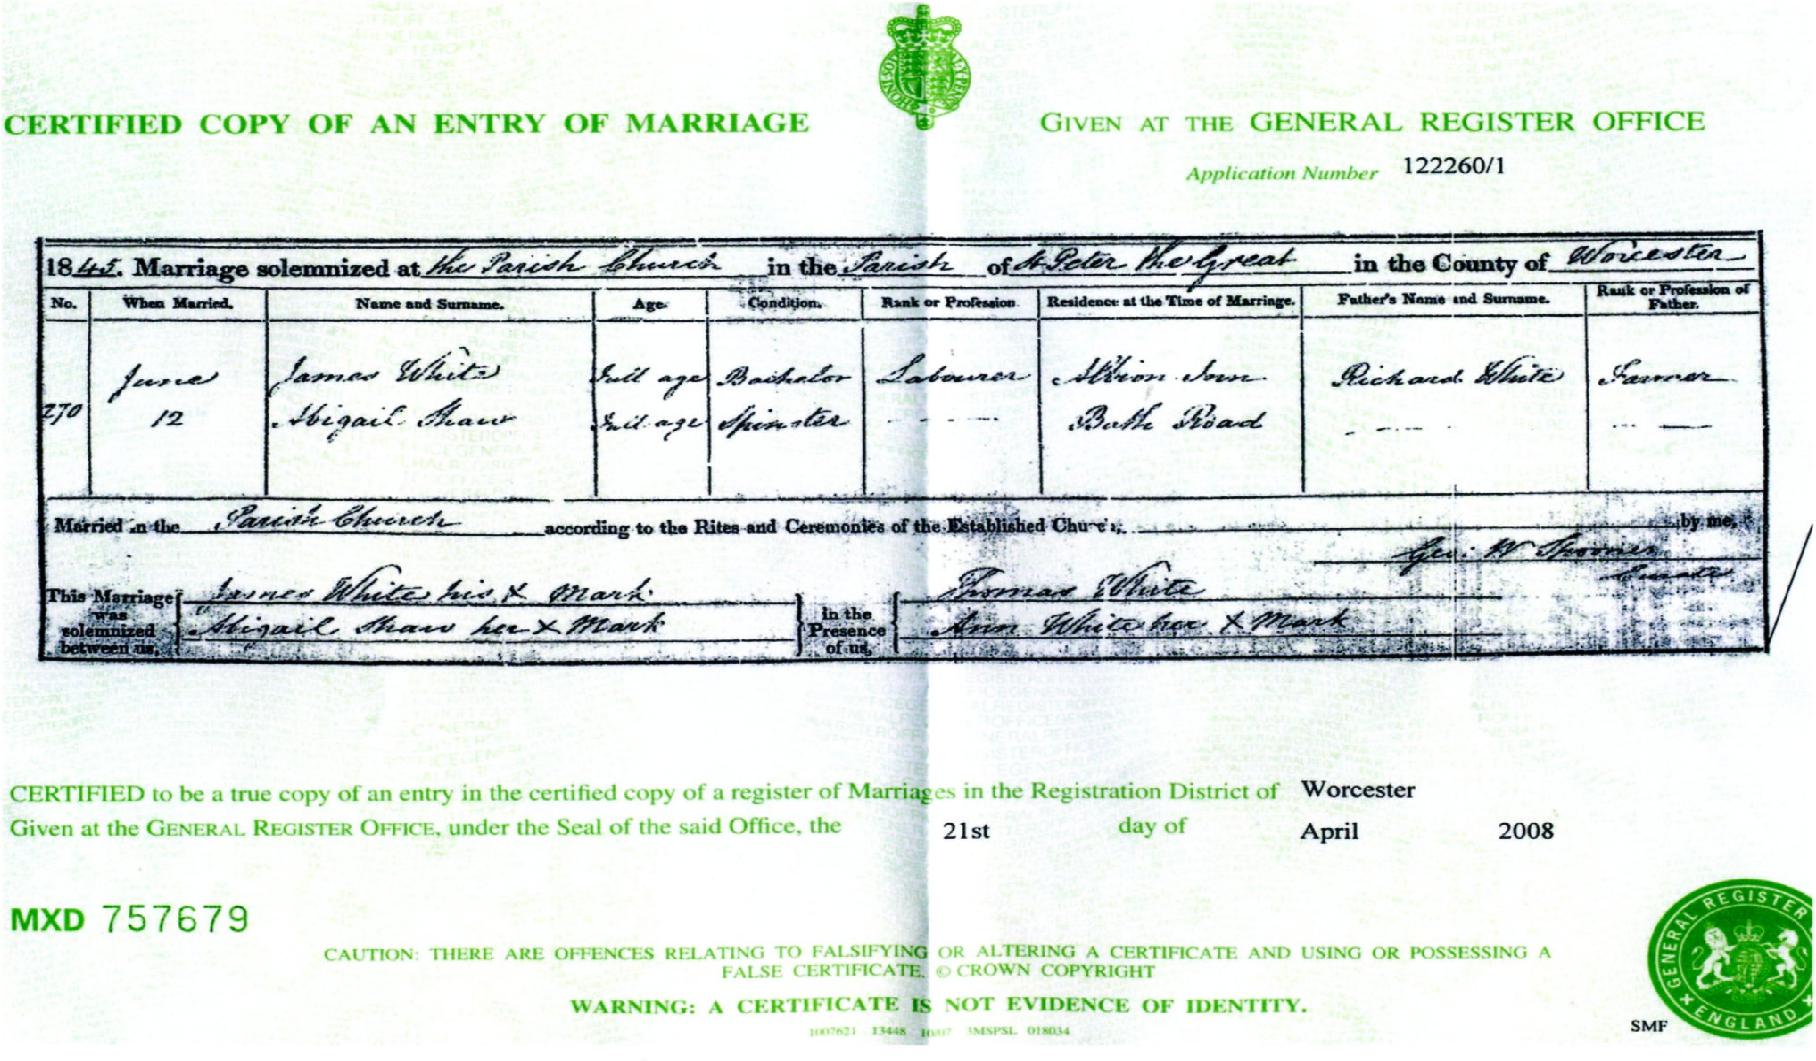 CERTIFIED COPY OF AN ENTRY OF MARRIAGE
GIVEN AT THE GENERAL REGISTER OFFICE
Application Number 122260/1
1845. Marriage solemnized at the Parish Church in the Parish of St Peter the Great in the County of Worcester
No. When Married. Name and Surname. Age. Condition. Rank or Profession. Residence at the Time of Marriage. Father's Name and Surname. Rank or Profession of Father.
June James White Full age Bachelor Labourer Albion Inn Richard White Farmer
270 12 Abigail Shaw Full age Spinster - - - - Bath Road - - - - - - - -
Married in the Parish Church according to the Rites and Ceremonies of the Established Church, by me,
Geo. W Spooner
Curate
This Marriage was solemnized between us, James White his X Mark in the Presence of us, Thomas White
Abigail Shaw her X Mark Ann White her X Mark
CERTIFIED to be a true copy of an entry in the certified copy of a register of Marriages in the Registration District of Worcester
Given at the GENERAL REGISTER OFFICE, under the Seal of the said Office, the 21st day of April 2008
MXD 757679
CAUTION: THERE ARE OFFENCES RELATING TO FALSIFYING OR ALTERING A CERTIFICATE AND USING OR POSSESSING A
FALSE CERTIFICATE. © CROWN COPYRIGHT
WARNING: A CERTIFICATE IS NOT EVIDENCE OF IDENTITY.
1007621 13448 10/07 3MSPSL 018034
SMF
GENERAL REGISTER
ENGLAND